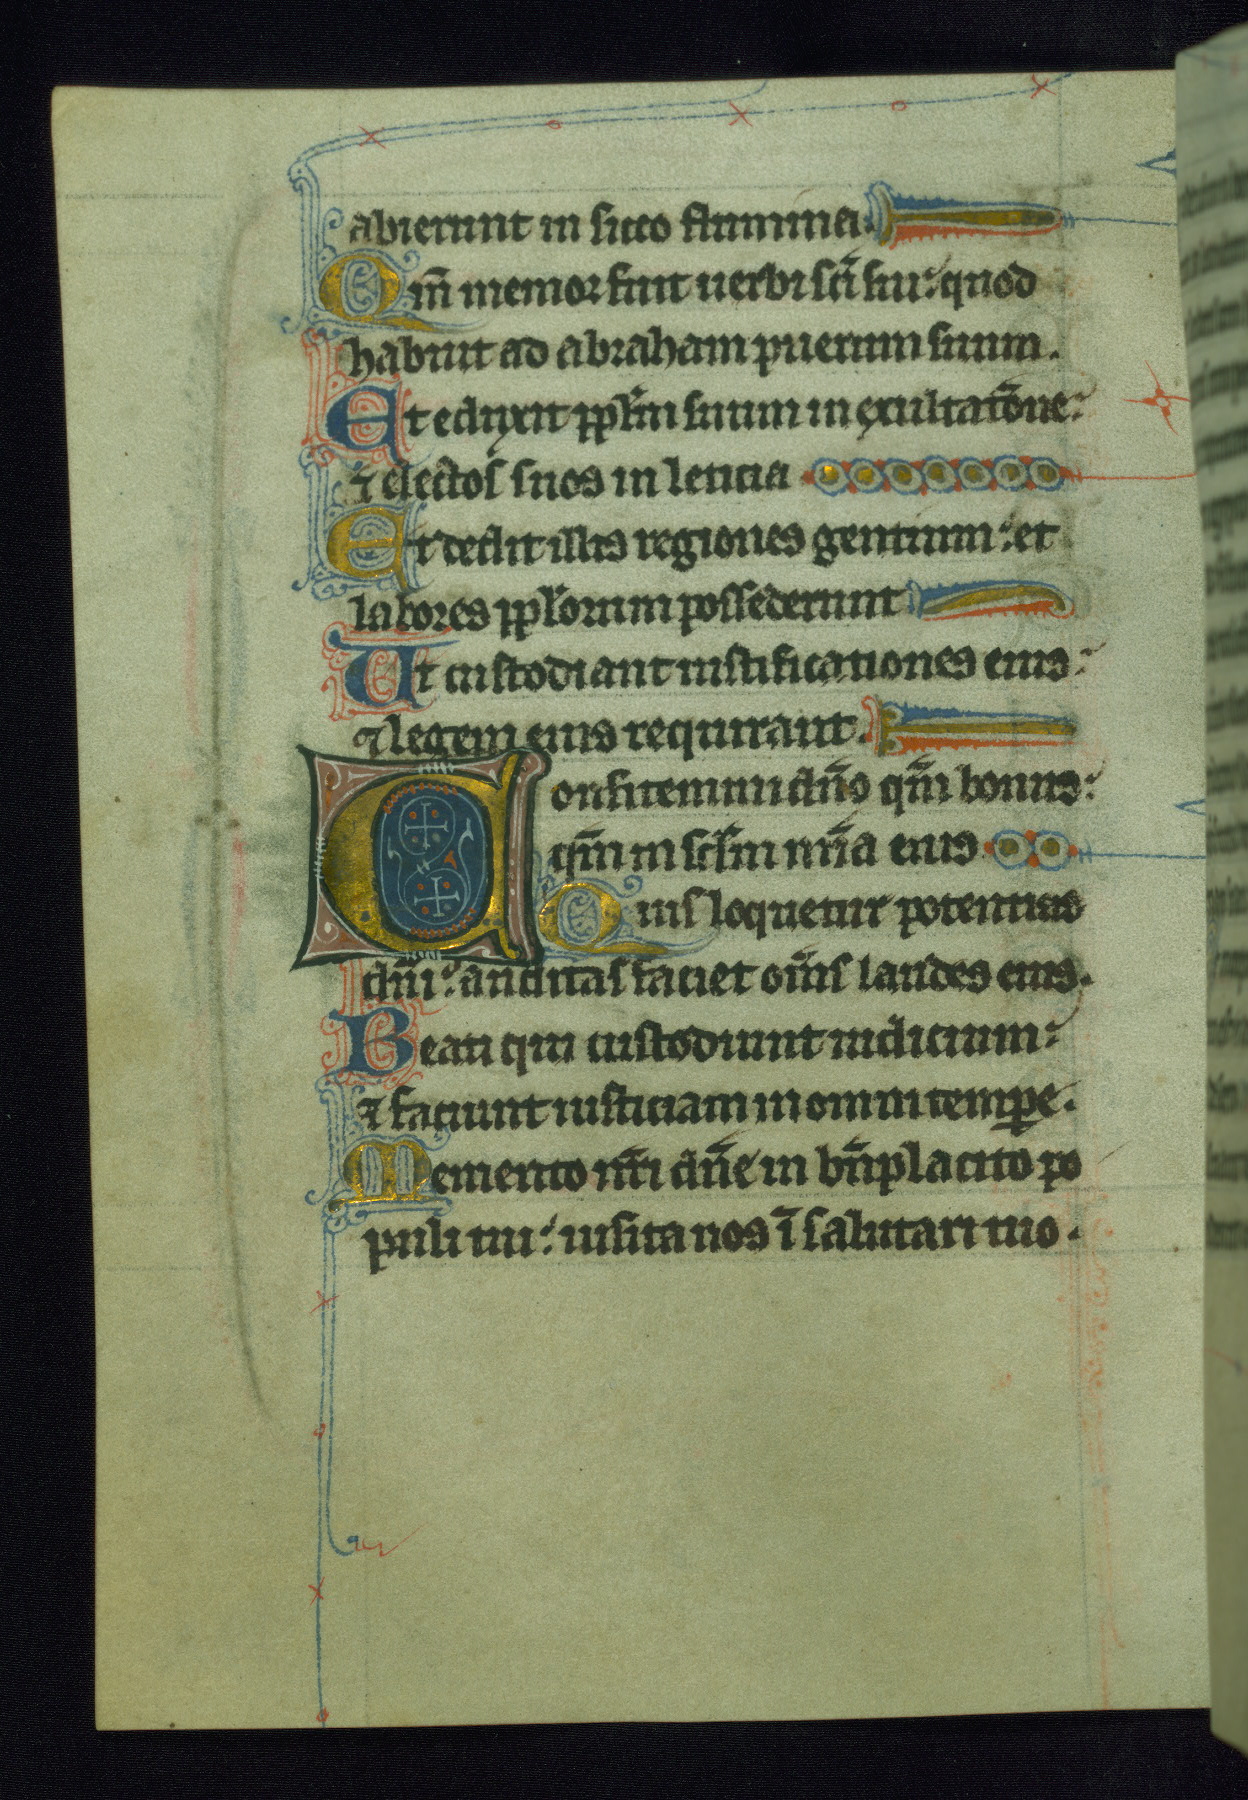 abierunt in sicco flumina.
Qm̄ memor fuit uerbi sc̄i sui: quod
habuit ad abraham puerum suum.
Et eduxit ppl̄m suum in exultatōne:
⁊ electos suos in leticia
Et dedit illis regiones gentium: et
labores ppl̄orum possederunt
Ut custodiant iustificationes eius:
⁊ legem eius requirant.
Confitemini dn̄o qm̄ bonus:
qm̄ in sc̄lm mīa eius
Quis loquetur potentias
dn̄i: auditas faciet om̄s laudes eius.
Beati qui custodiunt iudicium:
⁊ faciunt iusticiam in omni tempe.
Memento nr̄i dn̄e in bn̄placito po
puli tui: uisita nos ī salutari tuo.